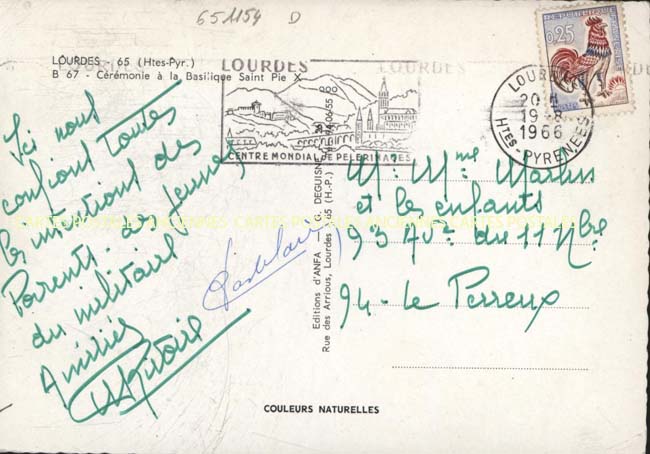 651154 D
LOURDES - 65 (Htes-Pyr.)
B 67 - Cérémonie à la Basilique Saint Pie X
LOURDES
CENTRE MONDIAL DE PELERINAGES
LOURDES
20 H
19 - 8
1966
Htes - PYRENEES
0,25
Ici nous
confions toutes
les intentions des
Parents - des jeunes
du militaire
Amitiés
M. Mme Martins
et les enfants
93 Av. du 11 Nbre
94 - Le Perreux
Editions d'ANFA — G. DEGUISNE
Rue des Arrious, Lourdes - 65 (H.-P.)
CARTES POSTALES ANCIENNES CARTES POSTALES ANCIENNES CARTES POSTALES
COULEURS NATURELLES